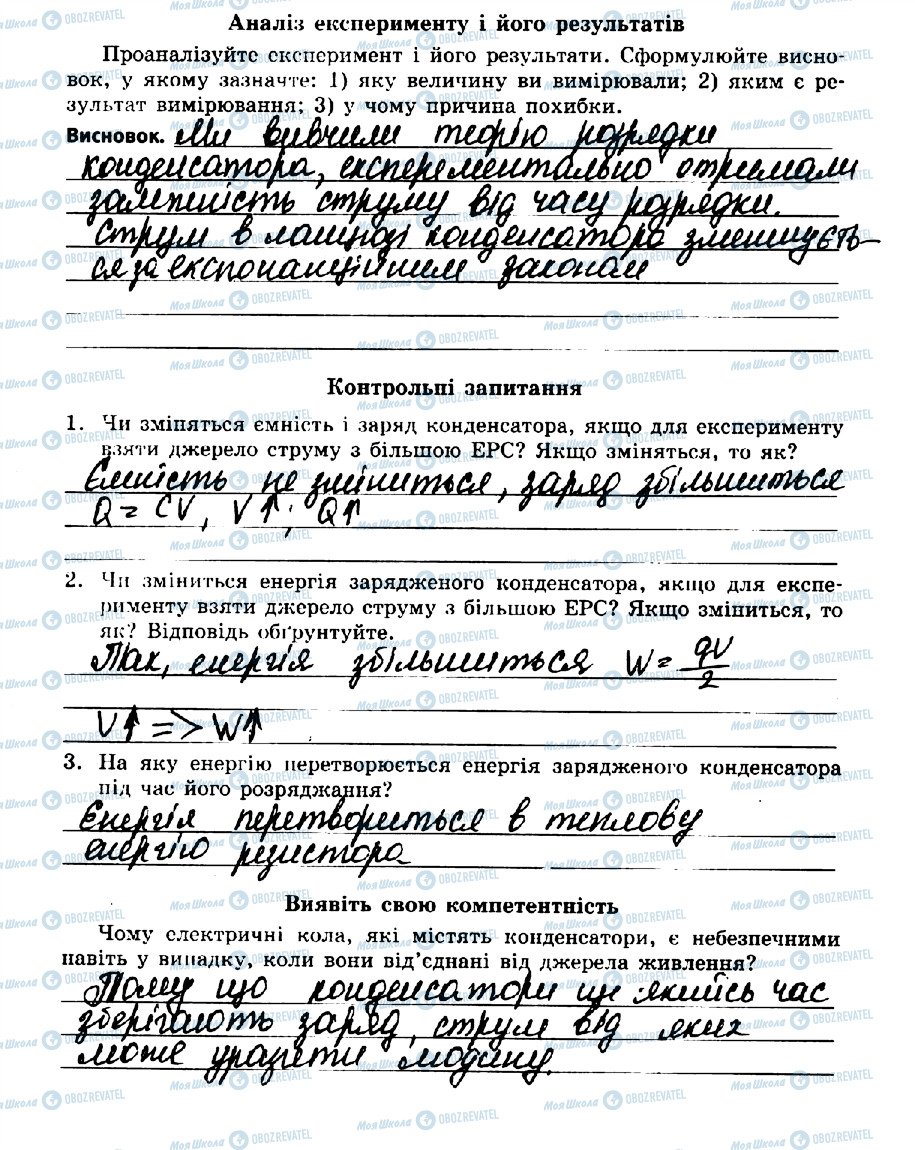 Аналіз експерименту і його результатів
Проаналізуйте експеримент і його результати. Сформулюйте висно-
вок, у якому зазначте: 1) яку величину ви вимірювали; 2) яким є ре-
зультат вимірювання; 3) у чому причина похибки.
Висновок. Ми вивчили теорію розрядки
конденсатора, експерементально отримали
залежність струму від часу розрядки.
Струм в ланцюзі конденсатора зменшуєть-
ся за експонанційним законом
Контрольні запитання
1. Чи зміняться ємність і заряд конденсатора, якщо для експерименту
взяти джерело струму з більшою ЕРС? Якщо зміняться, то як?
Ємність не зміниться, заряд збільшиться
Q = CV, V↑; Q↑
2. Чи зміниться енергія зарядженого конденсатора, якщо для експе-
рименту взяти джерело струму з більшою ЕРС? Якщо зміниться, то
як? Відповідь обґрунтуйте.
Так, енергія збільшиться W = qU/2
U↑ => W↑
3. На яку енергію перетворюється енергія зарядженого конденсатора
під час його розряджання?
Енергія перетвориться в теплову
енергію резистора
Виявіть свою компетентність
Чому електричні кола, які містять конденсатори, є небезпечними
навіть у випадку, коли вони від'єднані від джерела живлення?
Тому що конденсатори ще якийсь час
зберігають заряд, струм від яких
може уразити людину.